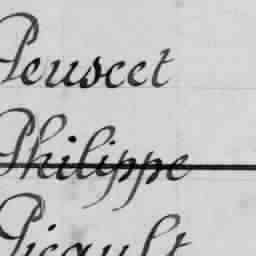 Peuscet
Philippe
Picault